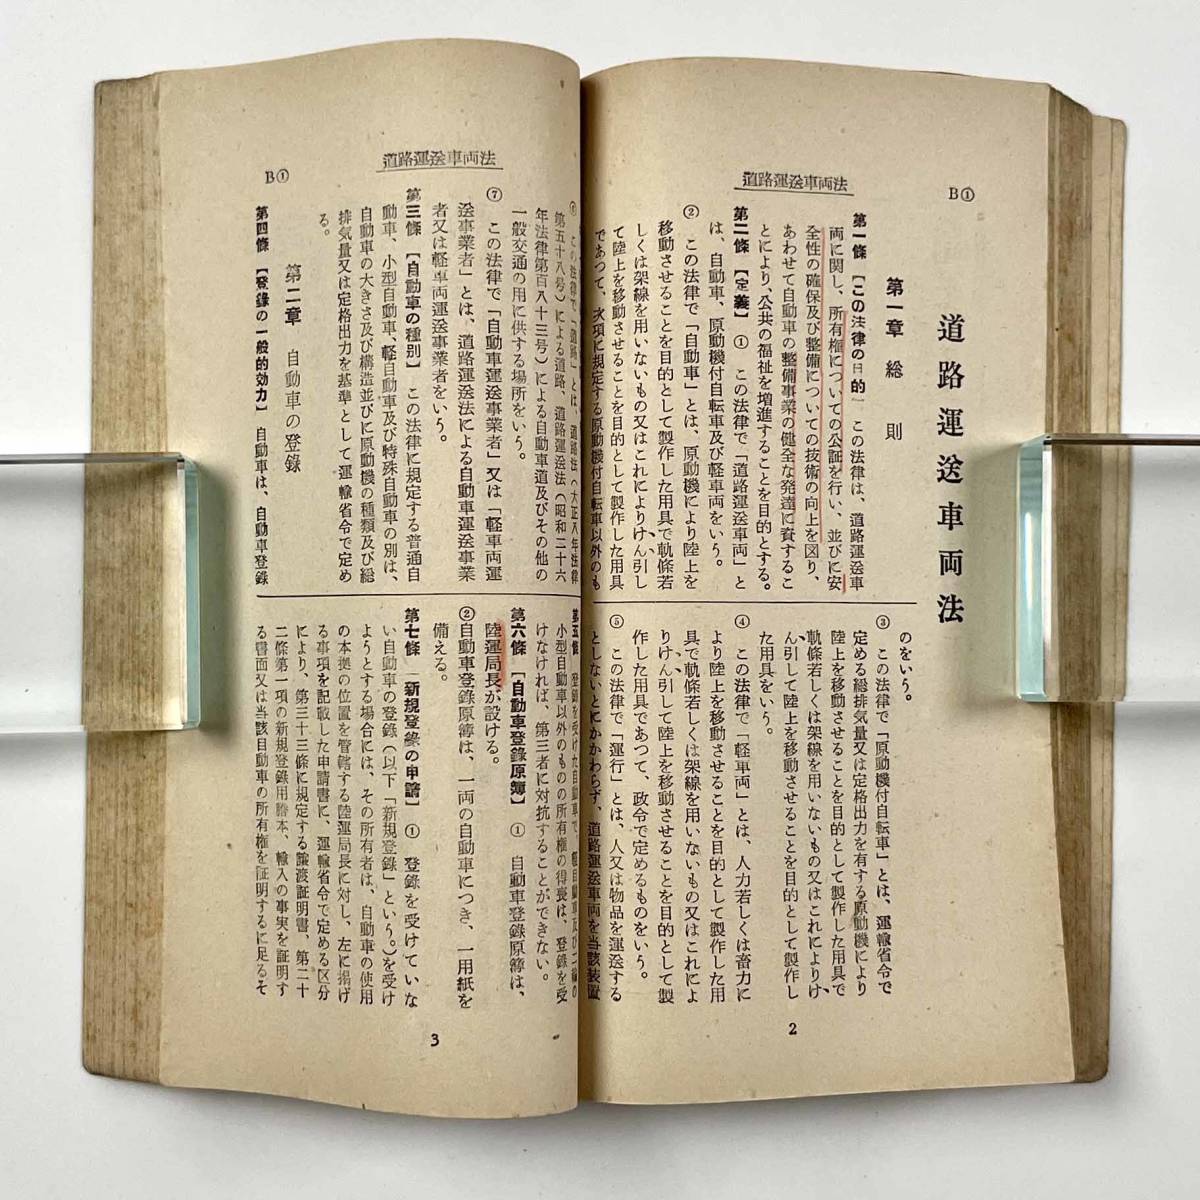 道路運送車両法
B①
道路運送車両法
第一章　総　則
第一條［この法律の目的］　この法律は、道路運送車
両に関し、所有権についての公証を行い、並びに安
全性の確保及び整備についての技術の向上を図り、
あわせて自動車の整備事業の健全な発達に資するこ
とにより、公共の福祉を増進することを目的とする。
第二條［定義］　①　この法律で「道路運送車両」と
は、自動車、原動機付自転車及び軽車両をいう。
②　この法律で「自動車」とは、原動機により陸上を
移動させることを目的として製作した用具で軌條若
しくは架線を用いないもの又はこれによりけん引し
て陸上を移動させることを目的として製作した用具
であつて、次項に規定する原動機付自転車以外のも
のをいう。
③　この法律で「原動機付自転車」とは、運輸省令で
定める総排気量又は定格出力を有する原動機により
陸上を移動させることを目的として製作した用具で
軌條若しくは架線を用いないもの又はこれによりけ
ん引して陸上を移動させることを目的として製作し
た用具をいう。
④　この法律で「軽車両」とは、人力若しくは畜力に
より陸上を移動させることを目的として製作した用
具で軌條若しくは架線を用いないもの又はこれによ
りけん引して陸上を移動させることを目的として製
作した用具であつて、政令で定めるものをいう。
⑤　この法律で「運行」とは、人又は物品を運送する
としないとにかかわらず、道路運送車両を当該装置
2
道路運送車両法
B①
この法律で「道路」とは、道路法（大正八年法律
第五十八号）による道路、道路運送法（昭和二十六
年法律第百八十三号）による自動車道及びその他の
一般交通の用に供する場所をいう。
⑦　この法律で「自動車運送事業者」又は「軽車両運
送事業者」とは、道路運送法による自動車運送事業
者又は軽車両運送事業者をいう。
第三條［自動車の種別］　この法律に規定する普通自
動車、小型自動車、軽自動車及び特殊自動車の別は、
自動車の大きさ及び構造並びに原動機の種類及び総
排気量又は定格出力を基準として運輸省令で定め
る。
第二章　自動車の登録
第四條［登録の一般的効力］　自動車は、自動車登録
第五條　登録を受けた自動車で、軽自動車及び二輪の
小型自動車以外のものの所有権の得喪は、登録を受
けなければ、第三者に対抗することができない。
第六條［自動車登録原簿］　①　自動車登録原簿は、
陸運局長が設ける。
②自動車登録原簿は、一両の自動車につき、一用紙を
備える。
第七條［新規登録の申請］　①　登録を受けていな
い自動車の登録（以下「新規登録」という。）を受け
ようとする場合には、その所有者は、自動車の使用
の本拠の位置を管轄する陸運局長に対し、左に掲げ
る事項を記載した申請書に、運輸省令で定める区分
により、第三十三條に規定する譲渡証明書、第二十
二條第一項の新規登録用謄本、輸入の事実を証明す
る書面又は当該自動車の所有権を証明するに足るそ
3